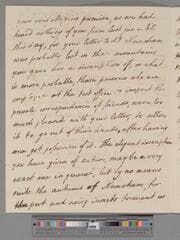 your very obliging promise, as we had
heard nothing of you from last use of it till
this day, for your letter to Nuneham
was probably lost on the mountains
you gave us a description of, or what
is more probable, those persons who are
employed at the post office to inspect the
private correspondence of friends were too
much pleased with your letter, to allow
it to go out of their hands, after having
once got possession of it. The elegant description
you have given of autumn, may be a very
exact one in general, but by no means
suits the autumn of Nuneham, for
wet and noisy insects torment us